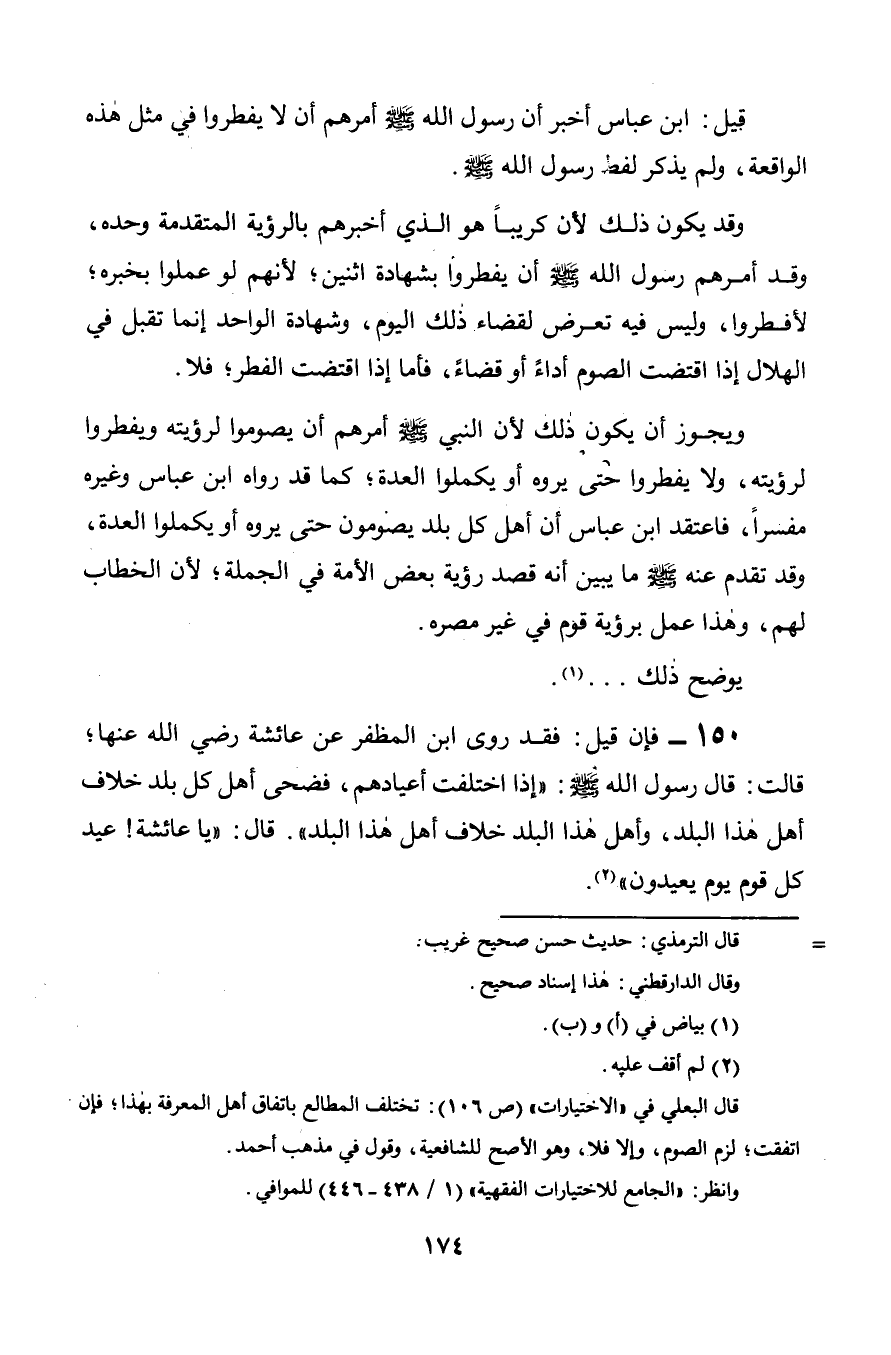 قيل: ابن عباس أخبر أن رسول الله ﷺ أمرهم أن لا يفطروا في مثل هٰذه
الواقعة، ولم يذكر لفظ رسول الله ﷺ.
وقد يكون ذلـك لأن كريبـاً هو الـذي أخبرهم بالرؤية المتقدمة وحده،
وقـد أمـرهم رسول الله ﷺ أن يفطروا بشهادة اثنين؛ لأنهم لو عملوا بخبره؛
لأفـطروا، وليس فيه تعـرض لقضاء ذٰلك اليوم، وشهادة الواحد إنما تقبل في
الهلال إذا اقتضت الصوم أداءً أو قضاءً، فأما إذا اقتضت الفطر؛ فلا.
ويجـوز أن يكون ذٰلك لأن النبي ﷺ أمرهم أن يصوموا لرؤيته ويفطروا
لرؤيته، ولا يفطروا حتى يروه أو يكملوا العدة؛ كما قد رواه ابن عباس وغيره
مفسراً، فاعتقد ابن عباس أن أهل كل بلد يصومون حتى يروه أو يكملوا العدة،
وقد تقدم عنه ﷺ ما يبين أنه قصد رؤية بعض الأمة في الجملة؛ لأن الخطاب
لهم، وهٰذا عمل برؤية قوم في غير مصره.
يوضح ذٰلك . . . (١).
١٥٠ ـ فإن قيل: فقـد روى ابن المظفر عن عائشة رضي الله عنها؛
قالت: قال رسول الله ﷺ: «إذا اختلفت أعيادهم، فضحى أهل كل بلد خلاف
أهل هٰذا البلد، وأهل هٰذا البلد خلاف أهل هٰذا البلد». قال: «يا عائشة! عيد
كل قوم يوم يعيدون»(٢).
= قال الترمذي: حديث حسن صحيح غريب.
وقال الدارقطني: هٰذا إسناد صحيح.
(١) بياض في (أ) و (ب).
(٢) لم أقف عليه.
قال البعلي في «الاختيارات» (ص ١٠٦): تختلف المطالع باتفاق أهل المعرفة بهٰذا؛ فإن
اتفقت؛ لزم الصوم، وإلا فلا، وهو الأصح للشافعية، وقول في مذهب أحمد.
وانظر: «الجامع للاختيارات الفقهية» (١ / ٤٣٨ ـ ٤٤٦) للموافي.
١٧٤